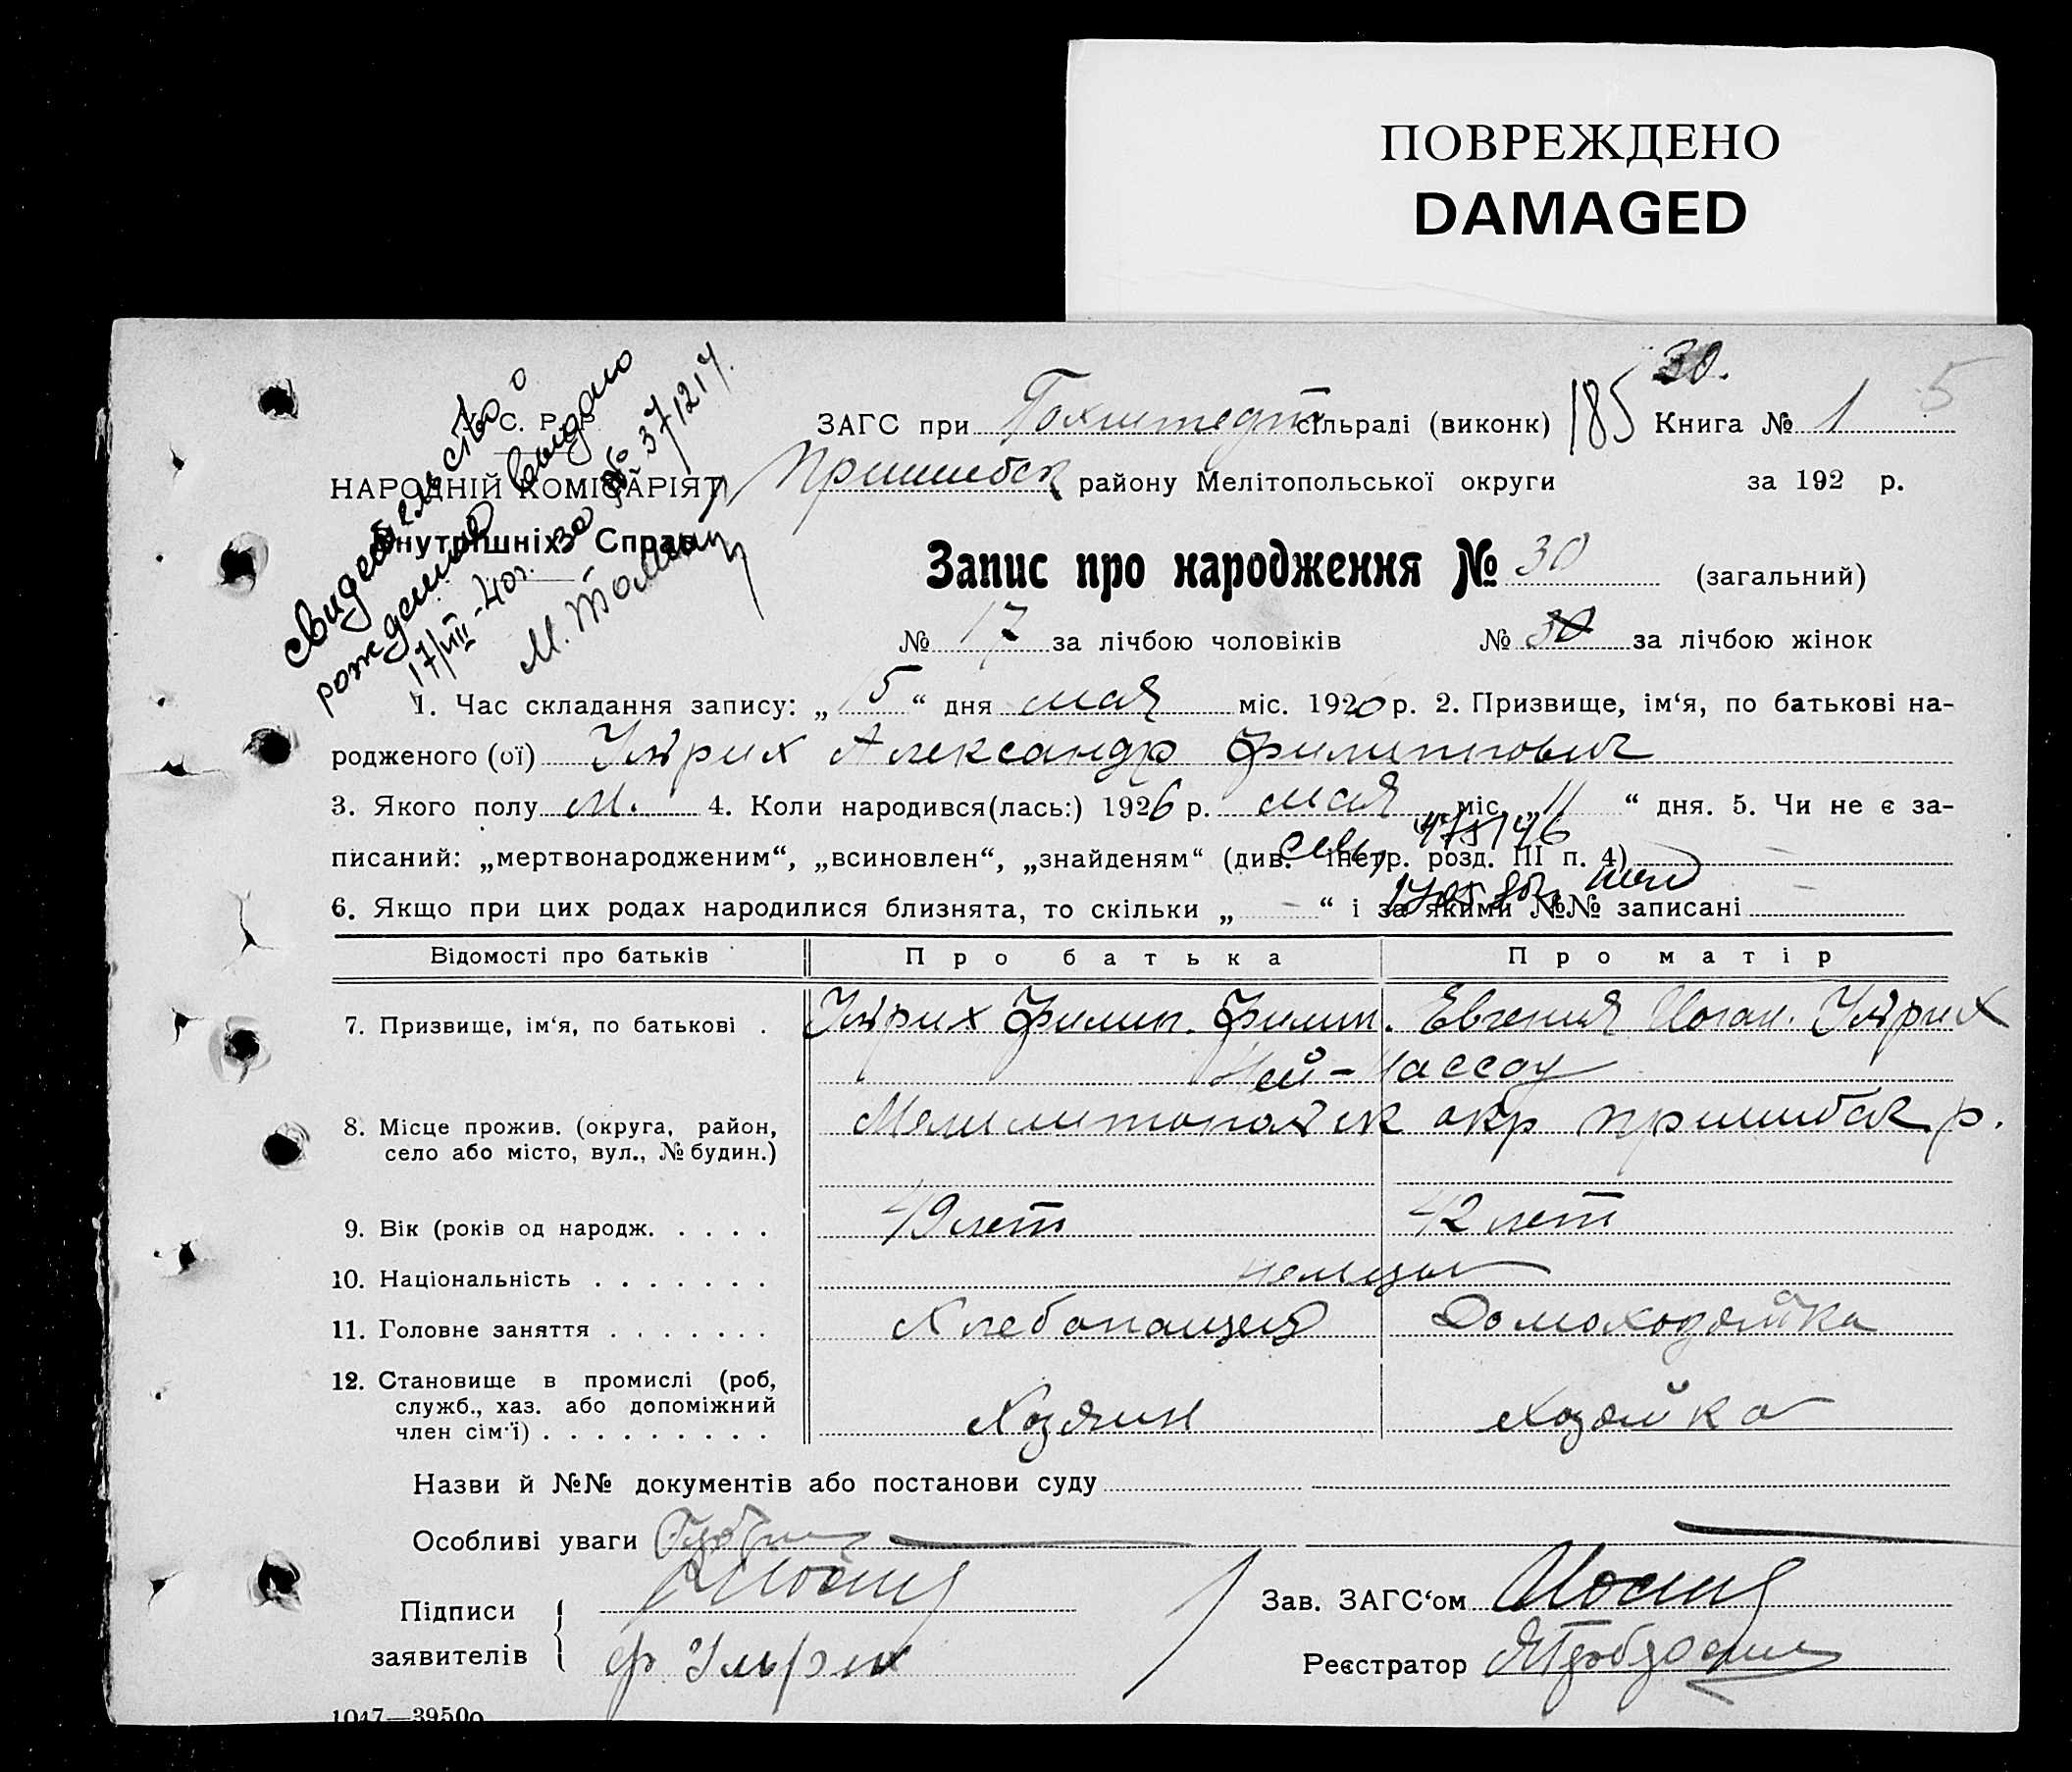 ПОВРЕЖДЕНО
DAMAGED
30.
5
С. Р. Р.
НАРОДНІЙ КОМІСАРІЯТ
Внутрішніх Справ
свидетельство о
рождении выдано
17/VIII-40г. за № 37/1217.
ЗАГС при Гохштедт сільраді (виконк) 185 Книга № 1
Пришибск району Мелітопольської округи за 192 р.
Запис про народження № 30 (загальний)
№ 17 за лічбою чоловіків № 30 за лічбою жінок
1. Час складання запису: „ 15 “ дня мая міс. 1926 р. 2. Призвище, ім‘я, по батькові на-
родженого (ої) Ульрих Александр Филиппович
3. Якого полу м. 4. Коли народився(лась:) 1926 р. мая міс. „ 11 “ дня. 5. Чи не є за-
писаний: „мертвонародженим“, „всиновлен“, „знайденям“ (див. інстр. розд. III п. 4)
6. Якщо при цих родах народилися близнята, то скільки „ – “ і за якими №№ записані
Відомості про батьків Про батька Про матір
7. Призвище, ім‘я, по батькові . Ульрих Филип. Филип. Евгения Иоган. Ульрих
Ней-Нассау
8. Місце прожив. (округа, район, село або місто, вул., № будин.) Мелитопольск окр Пришибск р.
9. Вік (років од народж. . . . . 49 лет 42 лет
10. Національність . . . . . . . немцы
11. Головне заняття . . . . . . . Хлебопашец Домохозяйка
12. Становище в промислі (роб,
служб., хаз. або допоміжний
член сім‘ї) . . . . . . . . . Хозяин Хозяйка
Назви й №№ документів або постанови суду
Особливі уваги
Підписи
заявителів
Ф Ульрих
Зав. ЗАГС‘ом
Реєстратор
1047—39500